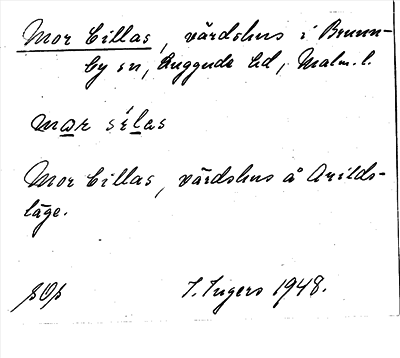 Mor Cillas, värdshus i Brunn-
by sn, Luggude hd, Malm. l.
mar sílas
Mor Cillas, värdshus å Arilds-
läge.
I. Ingers 1948.